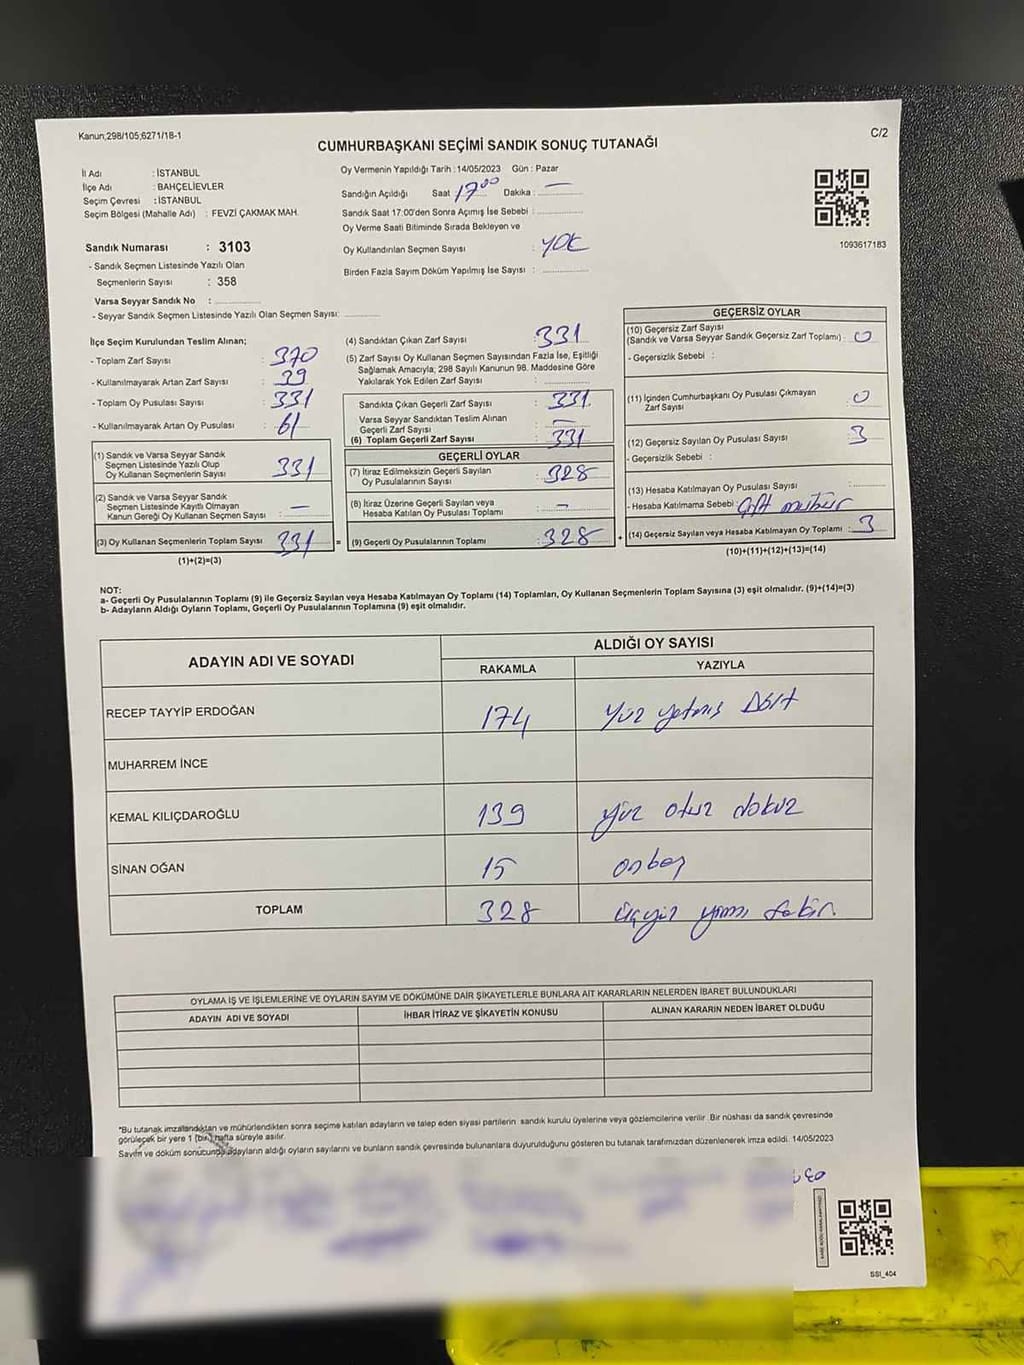 Kanun;298/105;6271/18-1
C/2
CUMHURBAŞKANI SEÇİMİ SANDIK SONUÇ TUTANAĞI
İl Adı : İSTANBUL
İlçe Adı : BAHÇELİEVLER
Seçim Çevresi : İSTANBUL
Seçim Bölgesi (Mahalle Adı) : FEVZİ ÇAKMAK MAH.
Sandık Numarası : 3103
- Sandık Seçmen Listesinde Yazılı Olan
Seçmenlerin Sayısı : 358
Varsa Seyyar Sandık No :
- Seyyar Sandık Seçmen Listesinde Yazılı Olan Seçmen Sayısı:
Oy Vermenin Yapıldığı Tarih : 14/05/2023 Gün : Pazar
Sandığın Açıldığı Saat 17:00 Dakika : —
Sandık Saat 17:00'den Sonra Açımış İse Sebebi :
Oy Verme Saati Bitiminde Sırada Bekleyen ve
Oy Kullandırılan Seçmen Sayısı : YOK
Birden Fazla Sayım Döküm Yapılmış İse Sayısı :
1093617183
İlçe Seçim Kurulundan Teslim Alınan;
- Toplam Zarf Sayısı : 370
- Kullanılmayarak Artan Zarf Sayısı : 39
- Toplam Oy Pusulası Sayısı : 331
- Kullanılmayarak Artan Oy Pusulası : 61
(1) Sandık ve Varsa Seyyar Sandık
Seçmen Listesinde Yazılı Olup
Oy Kullanan Seçmenlerin Sayısı : 331
(2) Sandık ve Varsa Seyyar Sandık
Seçmen Listesinde Kayıtlı Olmayan
Kanun Gereği Oy Kullanan Seçmen Sayısı : —
(3) Oy Kullanan Seçmenlerin Toplam Sayısı : 331
(1)+(2)=(3)
(4) Sandıktan Çıkan Zarf Sayısı : 331
(5) Zarf Sayısı Oy Kullanan Seçmen Sayısından Fazla İse, Eşitliği
Sağlamak Amacıyla; 298 Sayılı Kanunun 98. Maddesine Göre
Yakılarak Yok Edilen Zarf Sayısı :
Sandıkta Çıkan Geçerli Zarf Sayısı : 331
Varsa Seyyar Sandıktan Teslim Alınan
Geçerli Zarf Sayısı : —
(6) Toplam Geçerli Zarf Sayısı : 331
GEÇERLİ OYLAR
(7) İtiraz Edilmeksizin Geçerli Sayılan
Oy Pusulasının Sayısı : 328
(8) İtiraz Üzerine Geçerli Sayılan veya
Hesaba Katılan Oy Pusulası Toplamı : —
= (9) Geçerli Oy Pusulalarının Toplamı : 328
GEÇERSİZ OYLAR
(10) Geçersiz Zarf Sayısı
(Sandık ve Varsa Seyyar Sandık Geçersiz Zarf Toplamı) : 0
- Geçersizlik Sebebi :
(11) İçinden Cumhurbaşkanı Oy Pusulası Çıkmayan
Zarf Sayısı : 0
(12) Geçersiz Sayılan Oy Pusulası Sayısı : 3
- Geçersizlik Sebebi :
(13) Hesaba Katılmayan Oy Pusulası Sayısı :
- Hesaba Katılmama Sebebi : Çift mühür
+ (14) Geçersiz Sayılan veya Hesaba Katılmayan Oy Toplamı : 3
(10)+(11)+(12)+(13)=(14)
NOT:
a- Geçerli Oy Pusulalarının Toplamı (9) ile Geçersiz Sayılan veya Hesaba Katılmayan Oy Toplamı (14) Toplamları, Oy Kullanan Seçmenlerin Toplam Sayısına (3) eşit olmalıdır. (9)+(14)=(3)
b- Adayların Aldığı Oyların Toplamı, Geçerli Oy Pusulalarının Toplamına (9) eşit olmalıdır.
ADAYIN ADI VE SOYADI ALDIĞI OY SAYISI
RAKAMLA YAZIYLA
RECEP TAYYİP ERDOĞAN 174 Yüz yetmiş Dört
MUHARREM İNCE
KEMAL KILIÇDAROĞLU 139 yüz otuz dokuz
SİNAN OĞAN 15 onbeş
TOPLAM 328 üçyüz yirmi sekiz
OYLAMA İŞ VE İŞLEMLERİNE VE OYLARIN SAYIM VE DÖKÜMÜNE DAİR ŞİKAYETLERLE BUNLARA AİT KARARLARIN NELERDEN İBARET BULUNDUKLARI
ADAYIN ADI VE SOYADI İHBAR İTİRAZ VE ŞİKAYETİN KONUSU ALINAN KARARIN NEDEN İBARET OLDUĞU
*Bu tutanak imzalandıktan ve mühürlendikten sonra seçime katılan adayların ve talep eden siyasi partilerin sandık kurulu üyelerine veya gözlemcilerine verilir. Bir nüshası da sandık çevresinde
görülecek bir yere 1 (bir) hafta süreyle asılır.
Sayım ve döküm sonucunda adayların aldığı oyların sayılarını ve bunların sandık çevresinde bulunanlara duyurulduğunu gösteren bu tutanak tarafımızdan düzenlenerek imza edildi. 14/05/2023
SSI_404